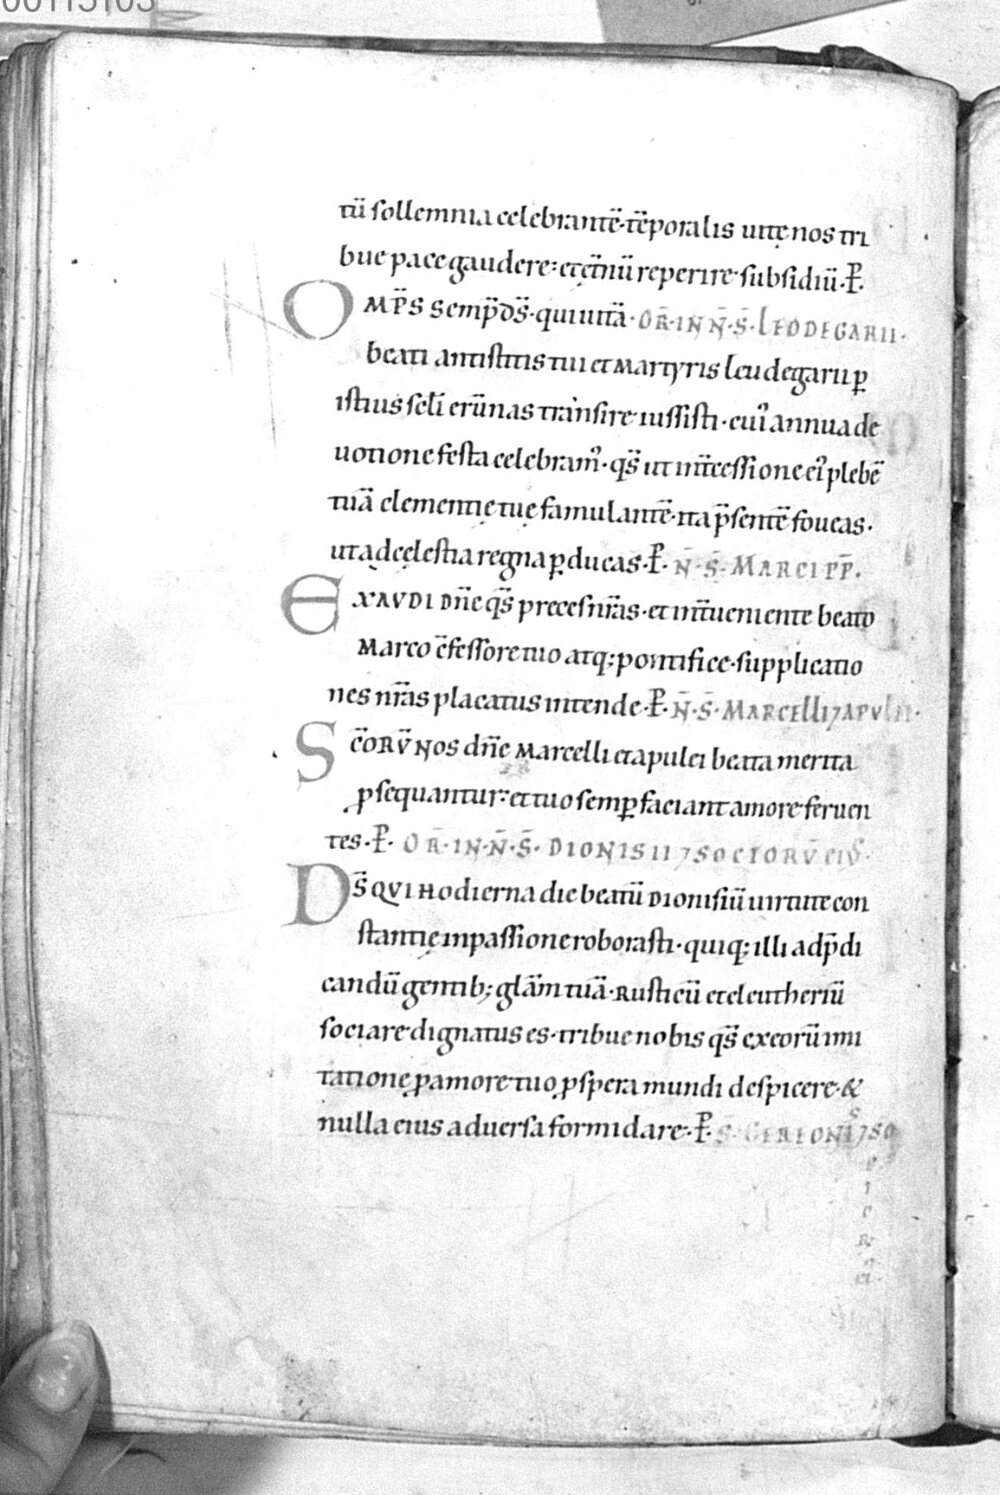 00115103
tū sollemnia celebrantē·tēporalis uitę nos tri
bue pace gaudere: et ęt̄nū reperire subsidiū·P̄·
OMP̄S semp̄ d̄s̄·qui uitā· OR̄·IN N̄·S̄·LEODEGARII·
beati antistitis tui et martyris leudegarii ꝑ
istius sc̄li erūnas transire iussisti·cuiꝰ annua de
uotione festa celebramꝰ·qs̄ ut int̄cessione eiꝰ plebē
tuā clementię tuę famulantē·ita p̄sentē foueas·
ut ad cęlestia regna ꝑducas·P̄· N̄·S̄·MARCI PP̄·
EXAUDI dn̄e qs̄ preces nr̄as·et int̄ueniente beato
Marco c̄fessore tuo atq; pontifice·supplicatio
nes nr̄as placatus intende·P̄· N̄·S̄·MARCELLI ⁊ APULEI·
SC̄ORŪ NOS dn̄e Marcelli et apulei beata merita
ꝓsequantur: et tuo semꝑ faciant amore feruen
tes·P̄· OR̄·IN·N̄·S̄·DIONISII ⁊ SOCIORŪ EIꝰ·
DS̄ QUI HOdierna die beatū Dionisiū uirtute con
stantię in passione roborasti·quiq; illi ad p̄di
candū gentib; glām tuā·Rusticū et eleutheriū
sociare dignatus es·tribue nobis qs̄ ex eorū imi
tatione ꝓ amore tuo ꝓspera mundi despicere·&
nulla eius aduersa formidare·P̄· S̄·GEREONIS ⁊ SO
c
i
o
r
ū